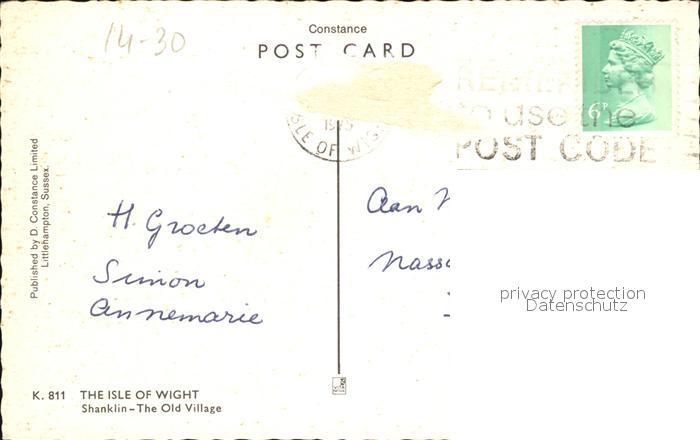 14-30
Constance
POST CARD
6P
REMEMBER
to use the
POST CODE
1975
ISLE OF WIGHT
Published by D. Constance Limited
Littlehampton, Sussex.
H. Groeten
Simon
Annemarie
Aan
Nass
privacy protection
Datenschutz
K. 811 THE ISLE OF WIGHT
Shanklin – The Old Village